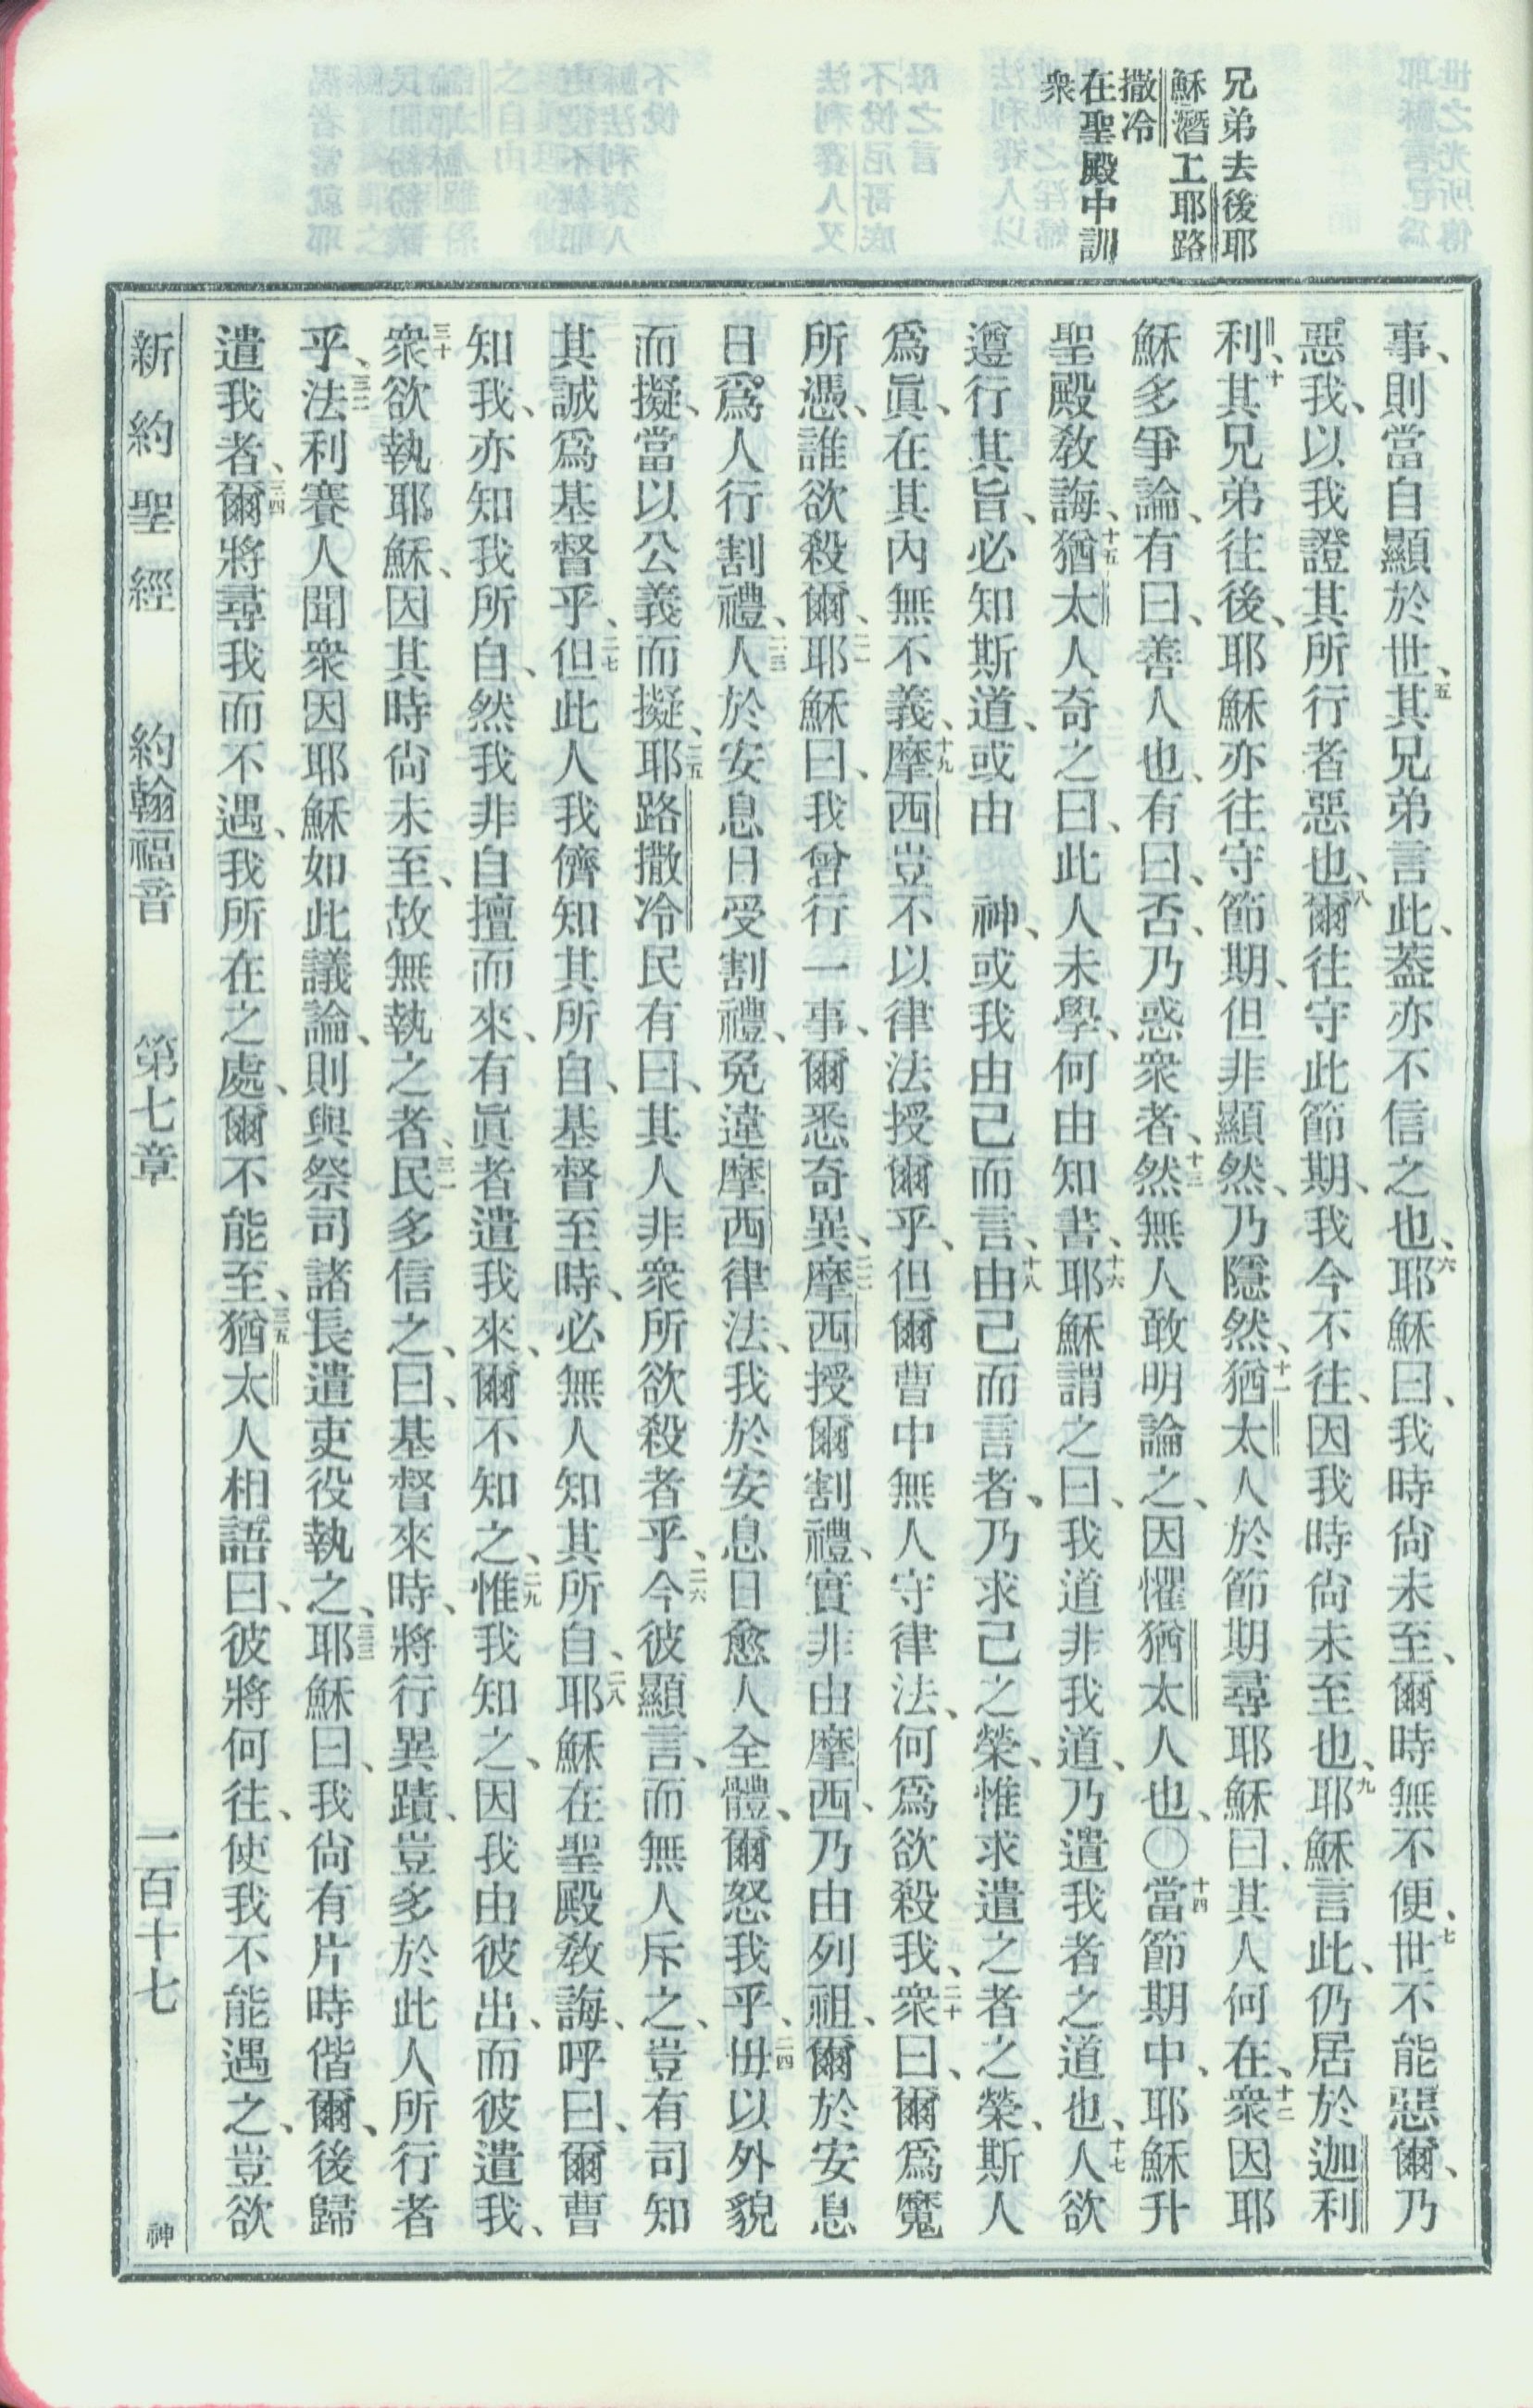 兄弟去後耶
穌潛上耶路
撒冷
在聖殿中訓
衆
事、則當自顯於世、五其兄弟言此、蓋亦不信之也、六耶穌曰、我時尚未至、爾時無不便、七世不能惡爾、乃
惡我、以我證其所行者惡也、八爾往守此節期、我今不往、因我時尚未至也、九耶穌言此、仍居於迦利
利、十其兄弟往後、耶穌亦往守節期、但非顯然、乃隱然、十一猶太人於節期尋耶穌曰、其人何在、十二衆因耶
穌多爭論、有曰、善人也、有曰、否、乃惑衆者、十三然無人敢明論之、因懼猶太人也、〇十四當節期中、耶穌升
聖殿教誨、十五猶太人奇之曰、此人未學、何由知書、十六耶穌謂之曰、我道非我道、乃遣我者之道也、十七人欲
遵行其旨、必知斯道、或由　神、或我由己而言、十八由己而言者、乃求己之榮、惟求遣之者之榮、斯人
爲眞、在其內無不義、十九摩西豈不以律法授爾乎、但爾曹中無人守律法、何爲欲殺我、二十衆曰、爾爲魔
所憑、誰欲殺爾、二一耶穌曰、我曾行一事、爾悉奇異、二二摩西授爾割禮、實非由摩西、乃由列祖、爾於安息
日爲人行割禮、二三人於安息日受割禮、免違摩西律法、我於安息日愈人全體、爾怒我乎、二四毋以外貌
而擬、當以公義而擬、二五耶路撒冷民有曰、其人非衆所欲殺者乎、二六今彼顯言、而無人斥之、豈有司知
其誠爲基督乎、二七但此人我儕知其所自、基督至時、必無人知其所自、二八耶穌在聖殿教誨、呼曰、爾曹
知我、亦知我所自、然我非自擅而來、有眞者遣我來、爾不知之、二九惟我知之、因我由彼出、而彼遣我、
三十衆欲執耶穌、因其時尚未至、故無執之者、三一民多信之、曰、基督來時、將行異蹟、豈多於此人所行者
乎、三二法利賽人聞衆因耶穌如此議論、則與祭司諸長遣吏役執之、三三耶穌曰、我尚有片時偕爾、後歸
遣我者、三四爾將尋我而不遇、我所在之處、爾不能至、三五猶太人相語曰、彼將何往、使我不能遇之、豈欲
新約聖經　約翰福音　第七章　一百十七　神